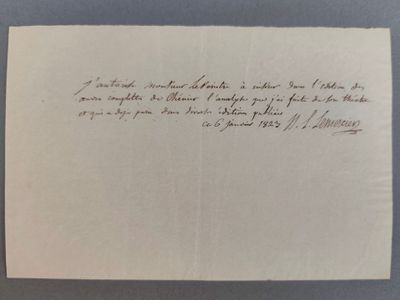 j'autorise monsieur Lepeintre à insérer dans l'édition des
œuvres complettes de Chénier l'analyse que j'ai faite de son théâtre
et qui a déjà paru dans diverses éditions publiées
ce 6 janvier 1823 N. L. Lemercier